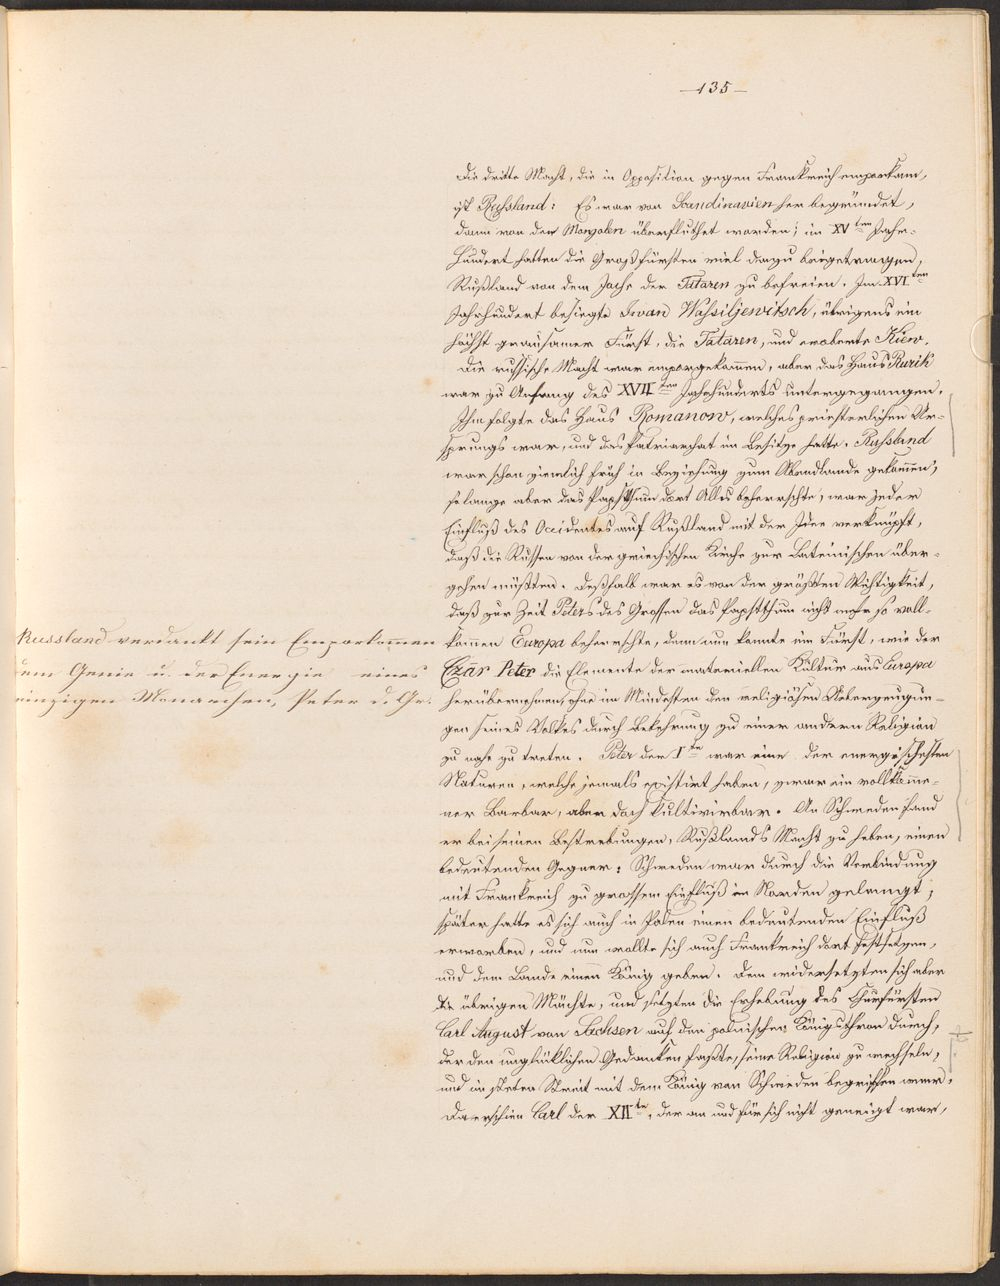 —135—
Die dritte Macht, die in Opposition gegen Frankreich emporkam,
ist Russland: Es war von Scandinavien her begründet,
dann von den Mongolen überfluthet worden; im XV ten Jahr-
hundert hatten die Großfürsten viel dazu beigetragen,
Rußland von dem Joche der Tataren zu befreien. Im XVI ten
Jahrhundert besiegte Iwan Wassiljewitsch, übrigens ein
höchst grausamer Fürst, die Tataren, und eroberte Kiew.
Die russische Macht war emporgekom̄en, aber das Haus Rurik
war zu Anfang des XVII ten Jahrhunderts untergegangen.
Ihm folgte das Haus Romanow, welches priesterlichen Ur-
sprungs war, und das Patriarchat im Besitze hatte. Russland
war schon ziemlich früh in Beziehung zum Abendlande gekom̄en;
solange aber das Papstthum dort Alles beherrschte, war jeder
Einfluß des Occidentes auf Rußland mit der Idee verknüpft,
daß die Russen von der griechischen Kirche zur Lateinischen über-
gehen müßten. Deßhalb war es von der größten Wichtigkeit,
daß zur Zeit Peters des Grossen das Papstthum nicht mehr so voll-
kommen Europa beherrschte, denn nun konnte ein Fürst, wie der
Czar Peter die Elemente der materiellen Kultur aus Europa
herübernehmen, ohne im Mindesten den religiösen Ueberzeugun-
gen seines Volkes durch Bekehrung zu einer andern Religion
zu nahe zu treten. Peter der I te war eine der energischesten
Naturen, welche jemals existirt haben, zwar ein vollkom̄e-
ner Barbar, aber doch kultivirbar. An Schweden fand
er bei seinen Bestrebungen, Rußlands Macht zu heben, einen
bedeutenden Gegner: Schweden war durch die Verbindung
mit Frankreich zu grossem Einfluß im Norden gelangt;
später hatte es sich auch in Polen einen bedeutenden Einfluß
erworben, und nun wollte sich auch Frankreich dort festsetzen,
und dem Lande einen König geben. Dem widersetzten sich aber
die übrigen Mächte, und setzten die Erhebung des Churfürsten
Carl August von Sachsen auf den polnischen Königsthron durch,
der den unglücklichen Gedanken faßte, seine Religion zu wechseln,
und in stetem Streit mit dem König von Schweden begriffen war.
Da erschien Carl der XII te, der an und für sich nicht geneigt war,
Russland verdankt sein Emporkommen
dem Genie u. der Energie eines
einzigen Monarchen, Peter d. Gr.